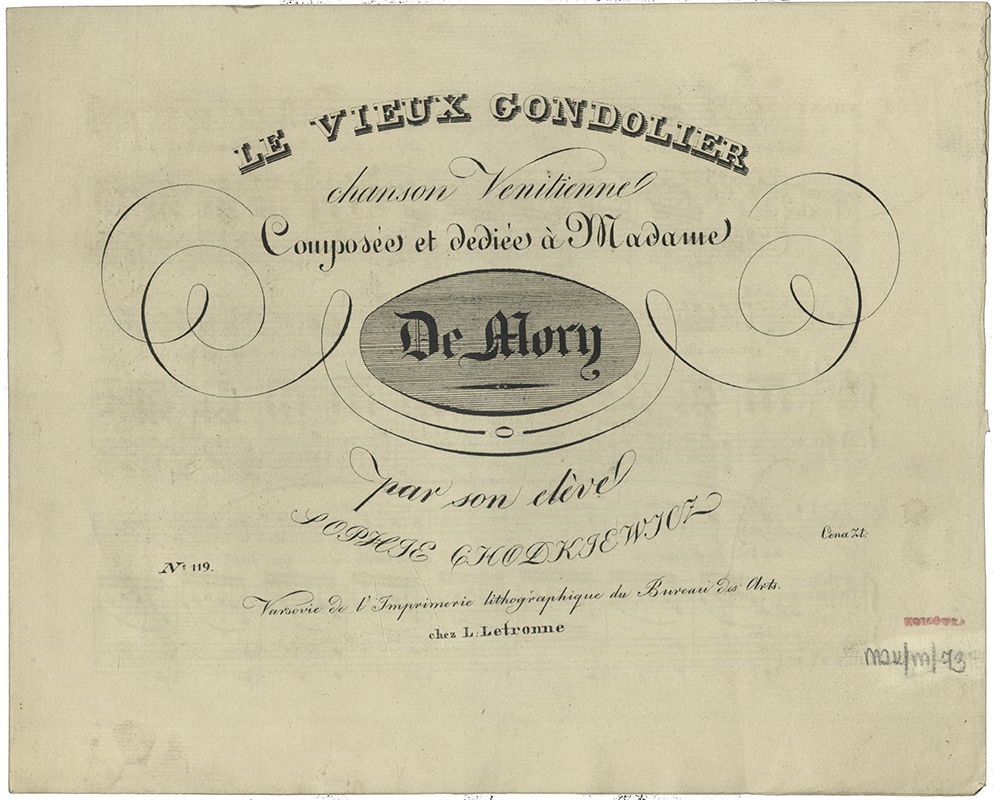 LE VIEUX GONDOLIER
chanson Venitienne
Composée et dediée à Madame
De Mory
par son elève
SOPHIE CHODKIEWICZ
Cena Zł:
Nº 119.
Varsovie de l'Imprimerie lithographique du Bureau des Arts.
chez L. Letronne